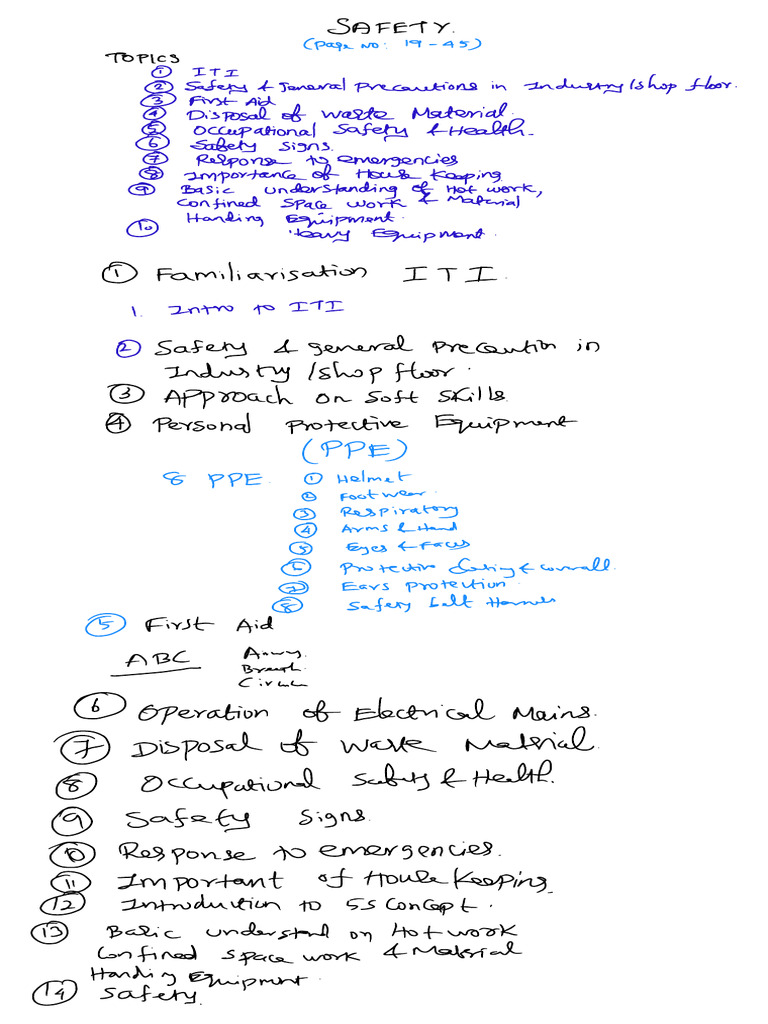 SAFETY.
(Page no: 19-45)
TOPICS
① ITI
② Safety & General Precautions in Industry/shop floor.
③ First Aid
④ Disposal of Waste Material.
⑤ Occupational Safety & Health.
⑥ Safety Signs.
⑦ Response to emergencies
⑧ Importance of House Keeping
⑨ Basic understanding of Hot work,
Confined space work & Material
Handing Equipment.
⑩ Heavy Equipment.
① Familiarisation ITI.
1. Intro to ITI
② Safety & general Precaution in
Industry/shop floor.
③ Approach on Soft Skills.
④ Personal Protective Equipment
(PPE)
8 PPE ① Helmet
② Footwear.
③ Respiratory
④ Arms & Hand
⑤ Eyes & Faces
⑥ Protective &
⑦ Ears Protection
⑧ Safety belt Harness
⑤ First Aid
ABC
⑥ Operation of Electrical Mains.
⑦ Disposal of Waste Material.
⑧ Occupational Safety & Health.
⑨ Safety Signs.
⑩ Response to emergencies.
⑪ Important of House Keeping
⑫ Introduction to 5S Concept.
⑬ Basic understand on Hot work
Confined space work & Material
Handing Equipment.
⑭ Safety.